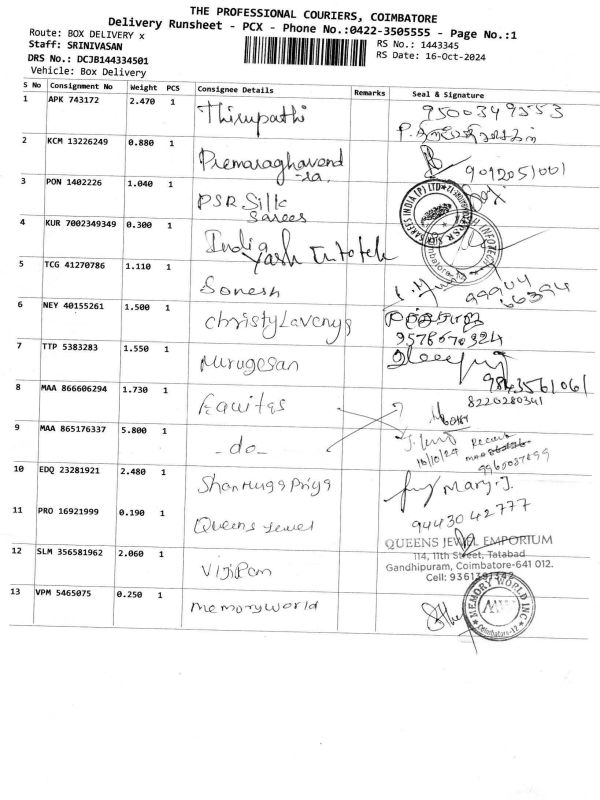 THE PROFESSIONAL COURIERS, COIMBATORE
Delivery Runsheet - PCX - Phone No.:0422-3505555 - Page No.:1
Route: BOX DELIVERY x
RS No.: 1443345
Staff: SRINIVASAN
RS Date: 16-Oct-2024
DRS No.: DCJB144334501
Vehicle: Box Delivery
S No Consignment No Weight PCS Consignee Details Remarks Seal & Signature
1 APK 743172 2.470 1 Thirupathi 9500349553
2 KCM 13226249 0.880 1 Premaraghavend
-ra. 9092051001
3 PON 1402226 1.040 1 PSR Silk
Sarees
4 KUR 7002349349 0.300 1 India
Yash Infotek
5 TCG 41270786 1.110 1 Sonesh 99904
66394
6 NEY 40155261 1.500 1 Christy Lavenya
9578670324
7 TTP 5383283 1.550 1 Murugesan
9843561061
8 MAA 866606294 1.730 1 Equitas 8220280341
9 MAA 865176337 5.800 1 -do-
16/10/24
10 EDQ 23281921 2.480 1 Shanmuga Priya Mary.J.
9443042777
11 PRO 16921999 0.190 1 Queens Jewel
QUEENS JEWEL EMPORIUM
114, 11th Street, Tatabad
Gandhipuram, Coimbatore-641 012.
Cell:
12 SLM 356581962 2.060 1 Viji Pan
13 VPM 5465075 0.250 1 memoryworld
MEMORY WORLD INC
Coimbatore-12